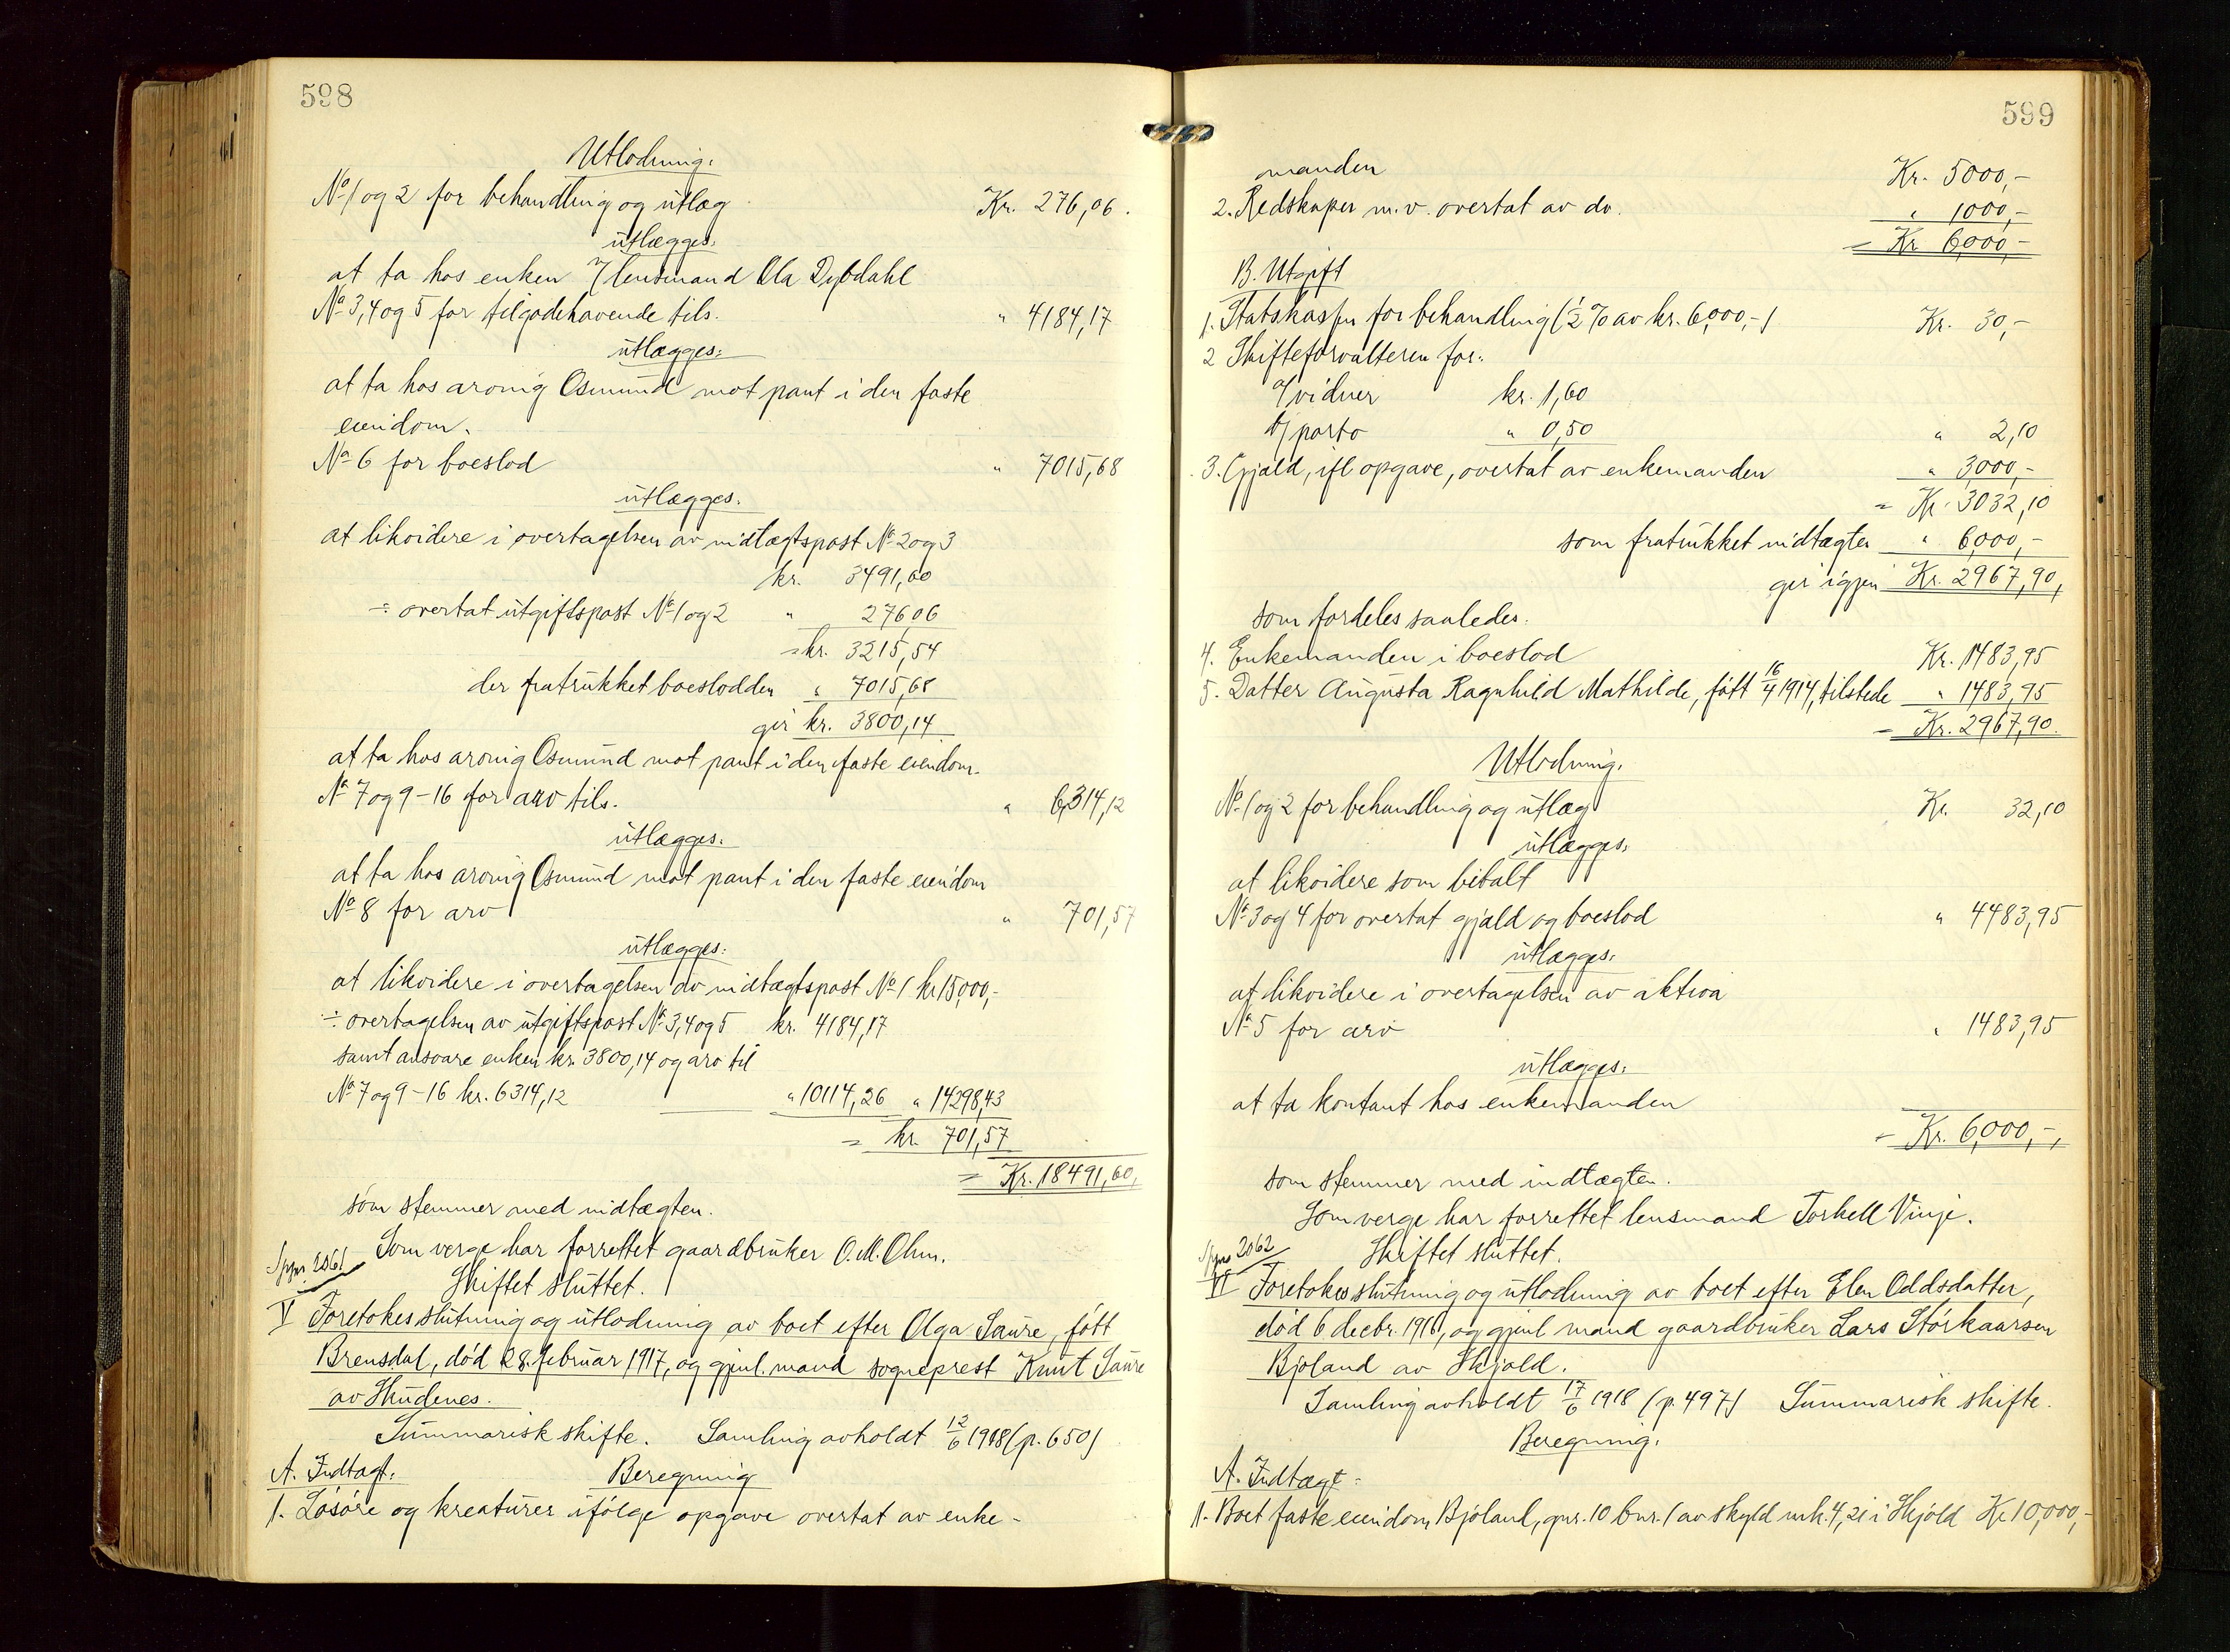 598
Utlodning.
No 1 og 2 for behandling og utlæg Kr. 276,06.
utlægges:
at ta hos enken v/ lensmand Ola Dybdahl
No 3, 4 og 5 for tilgodehavende tils. " 4184,17
utlægges:
at ta hos arving Osmund mot pant i den faste
eiendom.
No 6 for boeslod " 7015,68
utlægges:
at likvidere i overtagelsen av indtægtspost No 2 og 3
kr. 3491,60
÷ overtat utgiftspost No 1 og 2 " 276,06
= kr. 3215,54
der fratrukket boeslodden " 7015,68
gir kr. 3800,14
at ta hos arving Osmund mot pant i den faste eiendom.
No 7 og 9-16 for arv tils. " 6314,12
utlægges:
at ta hos arving Osmund mot pant i den faste eiendom
No 8 for arv " 701,57
utlægges:
at likvidere i overtagelsen av indtægtspost No 1 kr 15000,-
÷ overtagelsen av utgiftspost No 3, 4 og 5 kr. 4184,17
samt ansvare enken kr. 3800,14 og arv til
No 7 og 9-16 kr. 6314,12 " 10114,26 " 14298,43
= kr. 701,57
= Kr. 18491,60,
som stemmer med indtægten.
Som verge har forrettet gaardbruker O. M. Ohm.
Skiftet sluttet.
Spnr. 2061
V Foretokes slutning og utlodning av boet efter Olga Saure, født
Brensdal, død 28. februar 1917, og gjenl. mand sogneprest Knut Saure
av Skudenes.
Summarisk skifte. Samling avholdt 12/6 1918 (p. 650)
A. Indtægt: Beregning
1. Løsøre og kreaturer ifølge opgave overtat av enke-
599
manden Kr. 5000,-
2. Redskaper m.v. overtat av do. " 1000,-
= Kr 6000,-
B. Utgift
1. Statskassen for behandling (1/2 % av kr. 6000,-) Kr. 30,-
2 Skifteforvalteren for:
a/ vidner kr. 1,60
b/ porto " 0,50 " 2,10
3. Gjæld, ifl opgave, overtat av enkemanden " 3000,-
= Kr. 3032,10
som fratrukket indtægten " 6000,-
gir igjen Kr. 2967,90,
som fordeles saaledes:
4. Enkemanden i boeslod Kr. 1483,95
5. Datter Augusta Ragnhild Mathilde, født 16/4 1914, tilstede " 1483,95
= Kr. 2967,90.
Utlodning.
No 1 og 2 for behandling og utlæg Kr. 32,10
utlægges:
at likvidere som betalt
No 3 og 4 for overtat gjæld og boeslod " 4483,95
utlægges:
at likvidere i overtagelsen av aktiva
No 5 for arv " 1483,95
utlægges:
at ta kontant hos enkemanden
= Kr. 6,000,-,
som stemmer med indtægten.
Som verge har forrettet lensmand Torkell Vinje.
Skiftet sluttet.
Spnr 2062
VI Foretokes slutning og utlodning av boet efter Elen Oddsdatter,
død 6 decbr. 1916, og gjenl mand gaardbruker Lars Storkaarsen
Bjoland av Skjold.
Samling avholdt 17/6 1918 (p. 497) Summarisk skifte.
Beregning.
A. Indtægt:
1. Boet faste eiendom Bjoland, gnr. 10 bnr. 1 av skyld mk. 4,21 i Skjold Kr 10,000,-